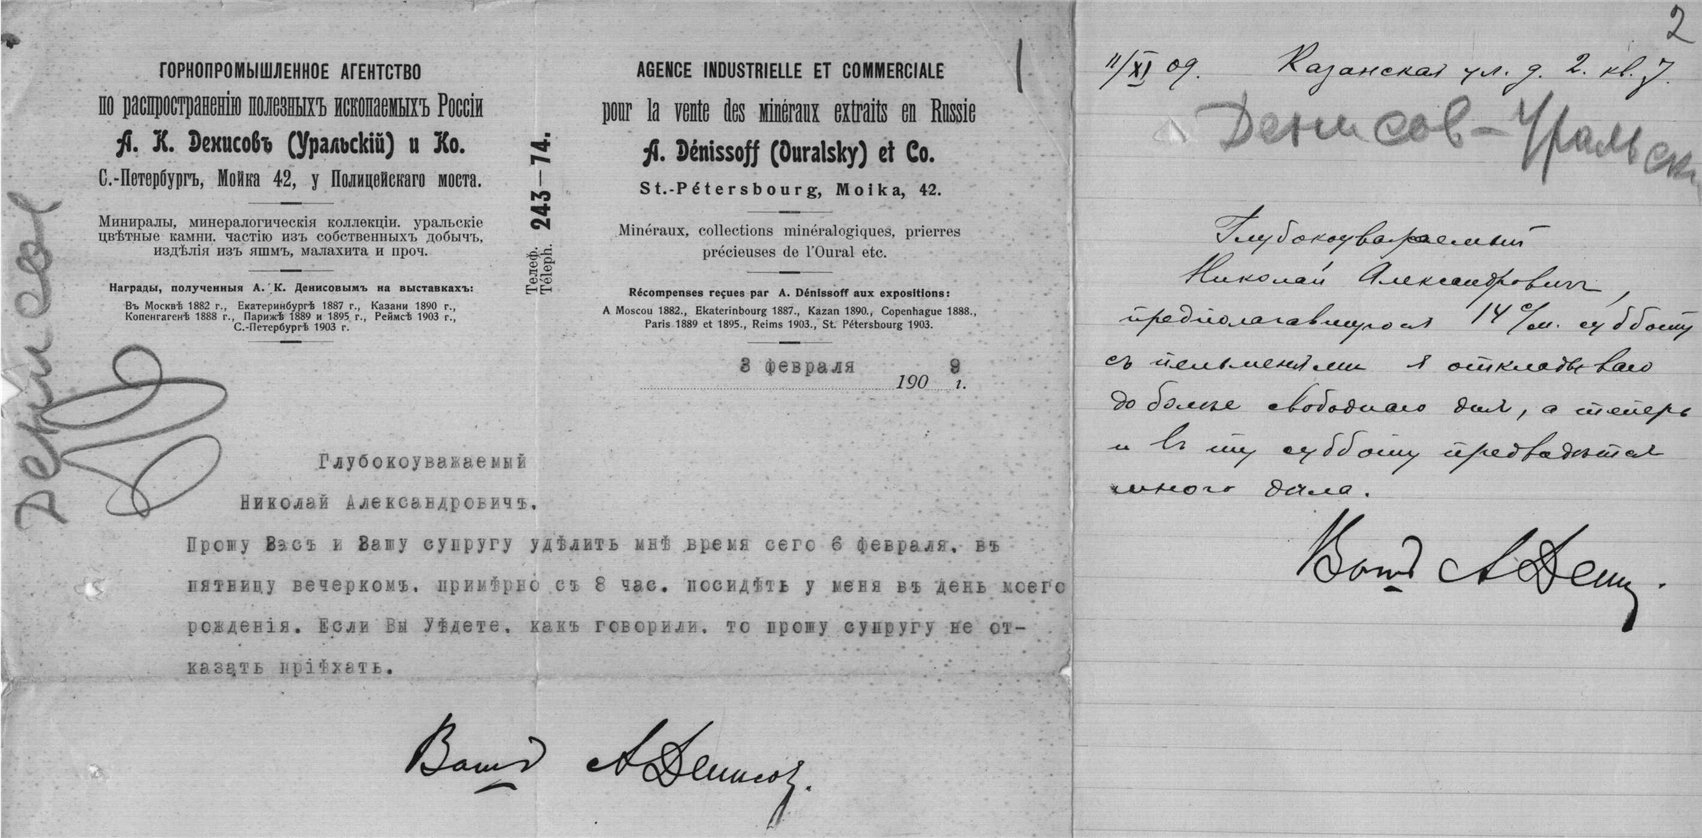 ГОРНОПРОМЫШЛЕННОЕ АГЕНТСТВО
по распространенію полезныхъ ископаемыхъ Россіи
А. К. Денисовъ (Уральскій) и Ко.
С.-Петербургъ, Мойка 42, у Полицейскаго моста.
Миниралы, минералогическія коллекціи. уральскіе
цвѣтные камни. частію изъ собственныхъ добычъ,
издѣлія изъ яшмъ, малахита и проч.
Награды, полученныя А. К. Денисовымъ на выставкахъ:
Въ Москвѣ 1882 г., Екатеринбургѣ 1887 г., Казани 1890 г.,
Копенгагенѣ 1888 г., Парижѣ 1889 и 1895 г., Реймсѣ 1903 г.,
С.-Петербургѣ 1903 г.
Телеф. 243—74.
Téleph.
AGENCE INDUSTRIELLE ET COMMERCIALE
pour la vente des minéraux extraits en Russie
A. Dénissoff (Ouralsky) et Co.
St.-Pétersbourg, Moika, 42.
Minéraux, collections minéralogiques, prierres
précieuses de l'Oural etc.
Récompenses reçues par A. Dénissoff aux expositions:
A Moscou 1882., Ekaterinbourg 1887., Kazan 1890., Copenhague 1888.,
Paris 1889 et 1895., Reims 1903., St. Pétersbourg 1903.
1
3 февраля 190 9 г.
Денисов
Глубокоуважаемый
Николай Александровичъ.
Прошу Васъ и Вашу супругу удѣлить мнѣ время сего 6 февраля, въ
пятницу вечеркомъ, примѣрно съ 8 час. посидѣть у меня въ день моего
рожденія. Если Вы Уѣдете, какъ говорили, то прошу супругу не от-
казать пріѣхать.
Вашъ А Денисов.
2
11/XI 09. Казанская ул. д. 2. кв. 7.
Денисов-Уральск
Глубокоуважаемый
Николай Александрович,
предполагавшуюся 14 с/м. субботу
съ пельменями я откладываю
до болѣе свободнаго дня, а теперь
и въ ту субботу предвидется
много дѣла.
Вашъ А Денис.